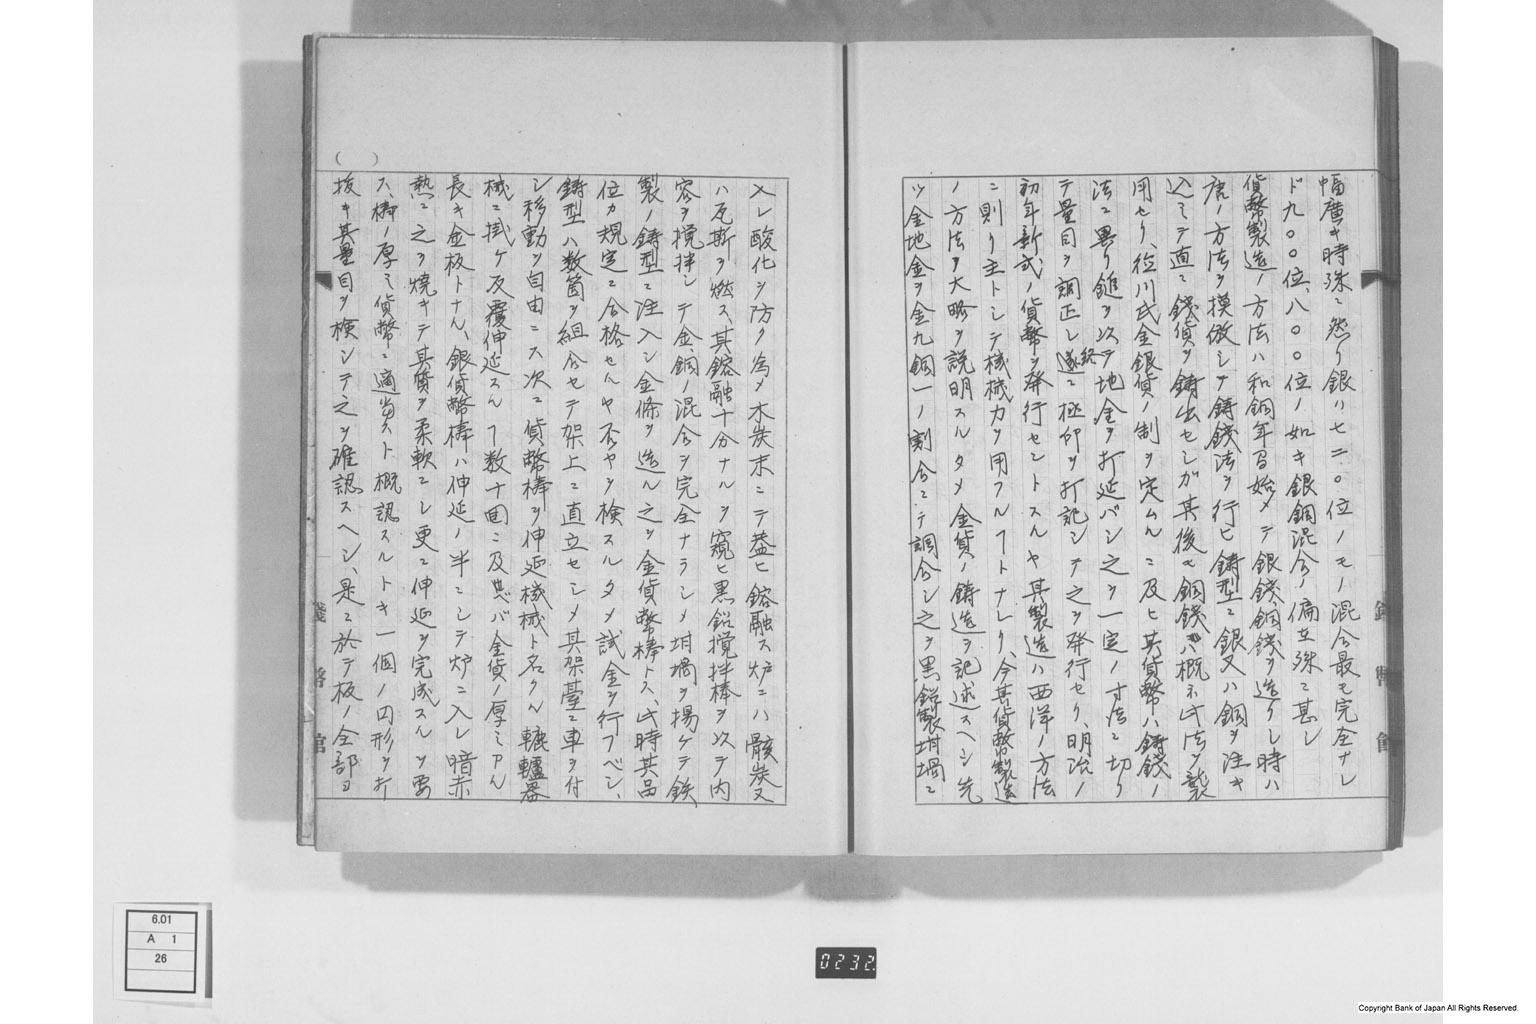 幅廣キ時殊ニ然リ銀ハ七二〇位ノモノ混合最モ完全ナレ
ド九〇〇位、八〇〇位ノ如キ銀銅混合ノ偏立殊ニ甚シ
貨幣製造ノ方法ハ和銅年間始メテ銀錢、銅錢ヲ造リシ時ハ
唐ノ方法ヲ摸倣シテ鋳錢法ヲ行ヒ鋳型ニ銀又ハ銅ヲ注キ
込ミテ直ニ錢貨ヲ鋳出セシガ其後銅錢ハ概ネ此法ヲ襲
用セリ、徳川氏金銀貨ノ制ヲ定ムルニ及ヒ其貨幣ハ鋳錢ノ
法ニ異リ鎚ヲ以テ地金ヲ打延バシ之ヲ一定ノ寸法ニ切リ
テ量目ヲ調正シ遂ニ極印ヲ打記シテ之ヲ発行セリ、明治ノ
初年新式ノ貨幣ヲ発行セントスルヤ其製造ハ西洋ノ方法
ニ則リ主トシテ機械力ヲ用フルヿトナレリ、今其貨幣製造
ノ方法ヲ大略ヲ説明スルタメ金貨ノ鋳造ヲ記述スヘシ先
ツ金地金ヲ金九銅一ノ割合ニテ調合シ之ヲ黒鉛製坩堝ニ
入レ酸化ヲ防ク為メ木炭末ニテ蓋ヒ鎔融ス炉ニハ骸炭又
ハ瓦斯ヲ燃ス、其鎔融十分ナルヲ窺ヒ黒鉛攪拌棒ヲ以テ内
容ヲ攪拌シテ金、銅ノ混合ヲ完全ナラシメ坩堝ヲ揚ケテ鉄
製ノ鋳型ニ注入シ金條ヲ造ル之ヲ金貨幣棒トス、此時其品
位カ規定ニ合格セルヤ否ヤヲ検スルタメ試金ヲ行フベシ、
鋳型ハ数箇ヲ組合セテ架上ニ直立セシメ其架臺ニ車ヲ付
シ移動ヲ自由ニス次ニ貨幣棒ヲ伸延機械ト名クル轆轤器
械ニ掛ケ反覆伸延スルヿ数十回ニ及ベバ金貨ノ厚ミアル
長キ金板トナル、銀貨幣棒ハ伸延ノ半ニシテ炉ニ入レ暗赤
熱ニ之ヲ焼キテ其質ヲ柔軟ニシ更ニ伸延ヲ完成スルヲ要
ス、板ノ厚ミ貨幣ニ適当スト概認スルトキ一個ノ円形ヲ打
抜キ其量目ヲ検シテ之ヲ確認スヘシ、是ニ於テ板ノ全部ヨ
( )
錢幣館
6.01
A 1
26
0232.
Copyright Bank of Japan All Rights Reserved.